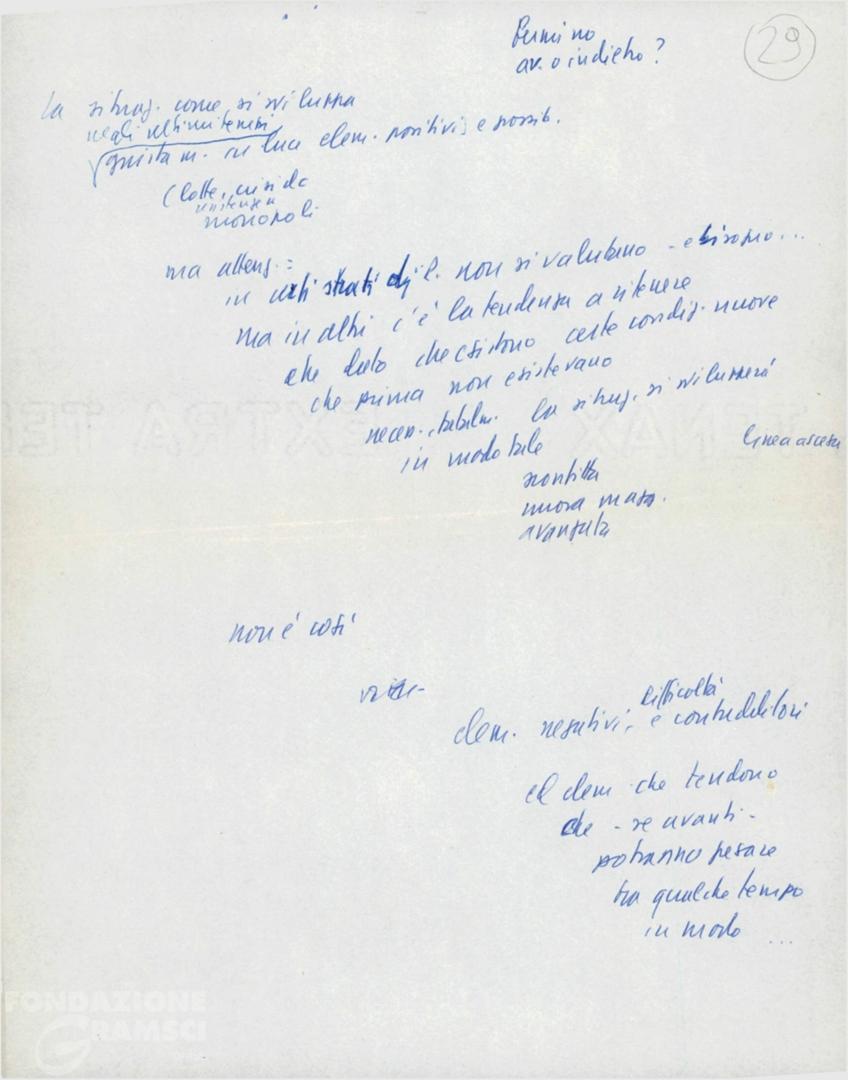 29
av. o indietro?
La situaz. come si sviluppa
negli ultimi tempi
giustam. in luce elem. positivi e possib.
(lotte, crisi da
monopoli
ma attenz. =
in certi strati di non si valutano - e bisogno...
ma in altri c'è la tendenza a ritenere
che dato che esistono certe condiz. nuove
che prima non esistevano
la situaz. si svilupperà
in modo tale
linea ascen
sconfitta
nuova magg.
avanzata
non è così
difficoltà
elem. negativi, e contraddittori
ed elem che tendono
che - se avanti -
potranno pesare
tra qualche tempo
in modo ...
FONDAZIONE
GRAMSCI